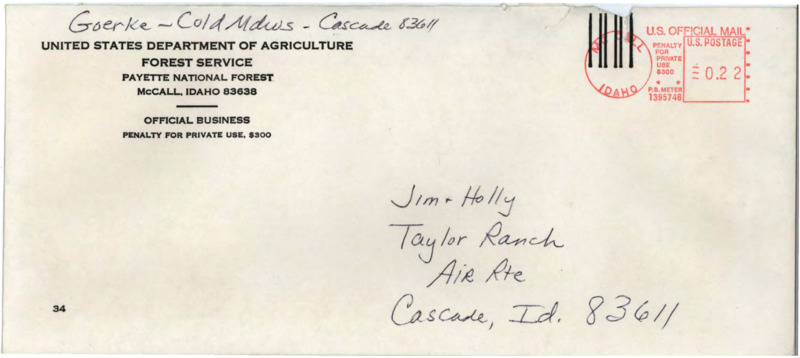 Goerke - Cold Mdws - Cascade 83611
UNITED STATES DEPARTMENT OF AGRICULTURE
FOREST SERVICE
PAYETTE NATIONAL FOREST
McCALL, IDAHO 83638
OFFICIAL BUSINESS
PENALTY FOR PRIVATE USE, $300
IDAHO
U.S. OFFICIAL MAIL
PENALTY
FOR
PRIVATE
USE
$300
P.B. METER
1395746
U.S. POSTAGE
0.22
Jim + Holly
Taylor Ranch
Air Rte
Cascade, Id. 83611
34